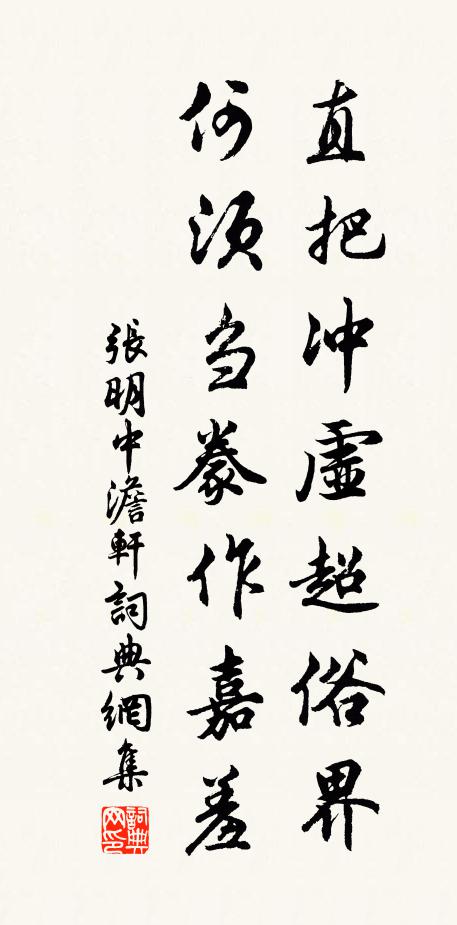 直把冲虛超俗界
何須刍豢作嘉羞
張明中澹軒詞典網集
詞典网印